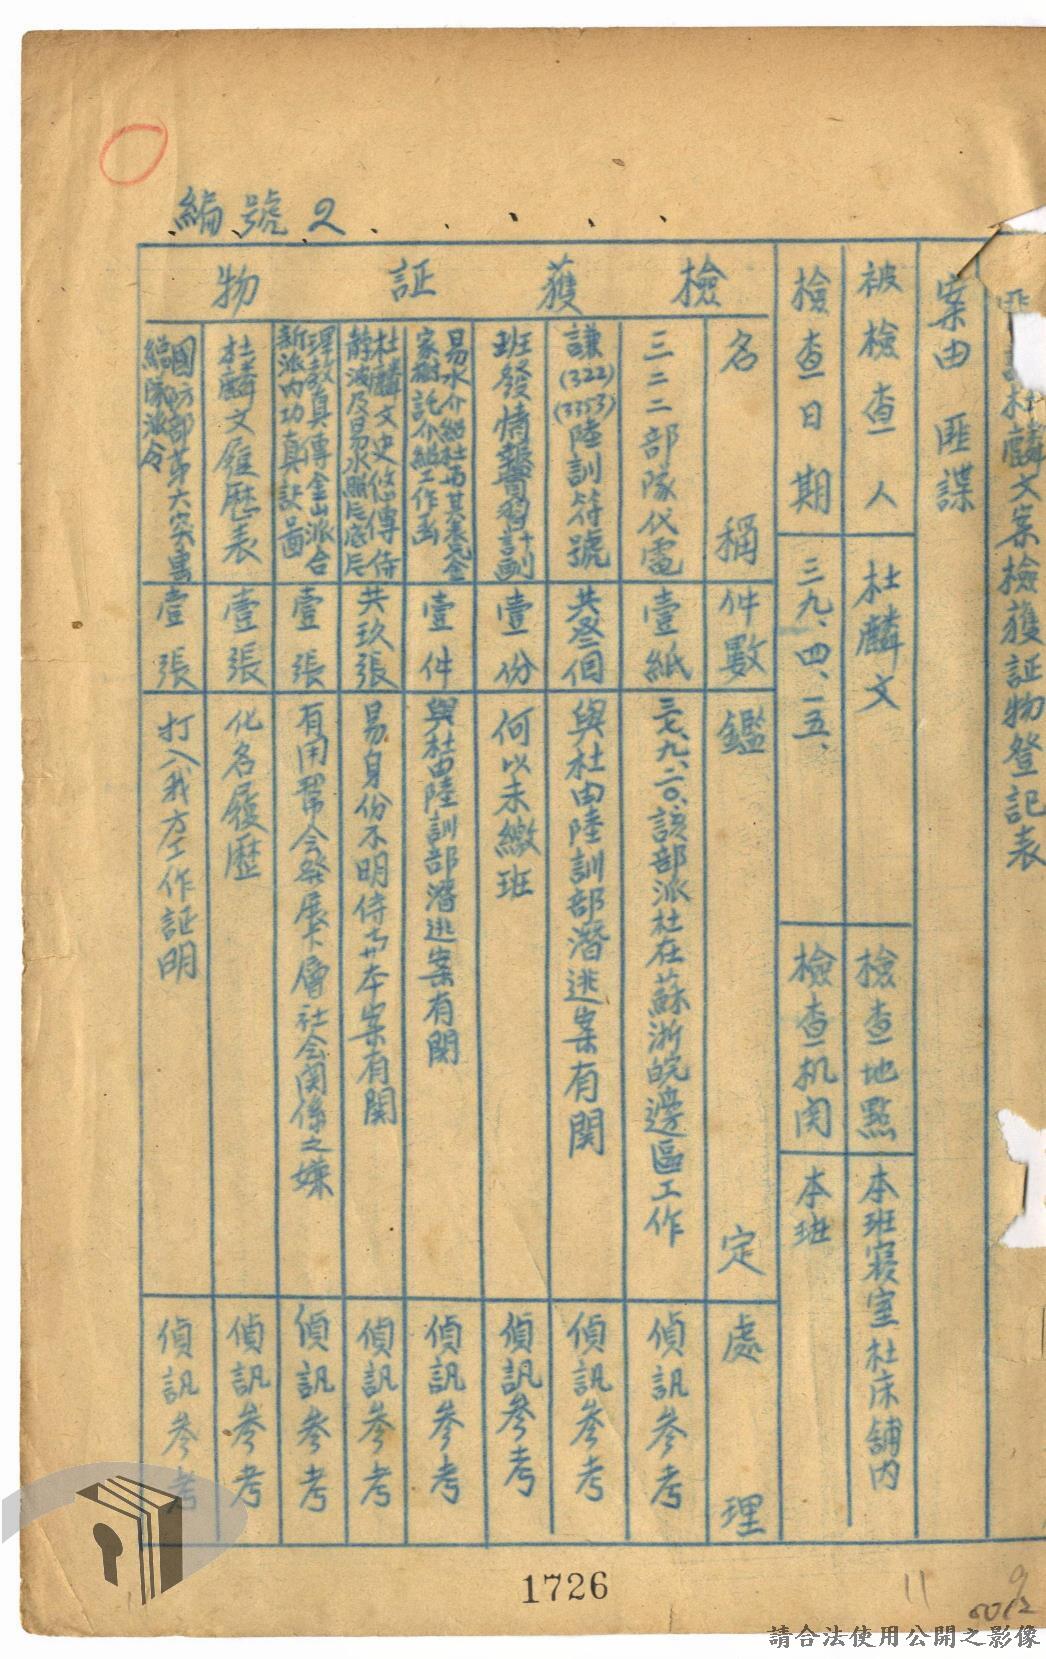 編號2
匪諜杜麟文案檢獲証物登記表
案由 匪諜
被檢查人 杜麟文 檢查地點 本班寢室杜床舖內
檢查日期 三九、四、一五、 檢查机関 本班
檢獲証物
名稱 件數 鑑定 處理
三二二部隊代電 壹紙 三七、九、二〇、該部派杜在蘇浙皖邊區工作 偵訊參考
謙(322)(3353)陸訓符號 共叁個 與杜由陸訓部潛逃案有関 偵訊參考
班發情報實習計劃 壹份 何以未繳班 偵訊參考
易水介紹杜
家樹託介紹工作函 壹件 與杜由陸訓部潛逃案有関 偵訊參考
杜麟文史悠傳
靜波及易水照片底片 共玖張 易身份不明 本案有関 偵訊參考
理教真傳金山派合
新派內功真訣圖 壹張 有用幫会發展下層社会関係之嫌 偵訊參考
杜麟文履歷表 壹張 化名履歷 偵訊參考
國防部第六突擊
總隊派令 壹張 打入我方工作証明 偵訊參考
1726
11
請合法使用公開之影像